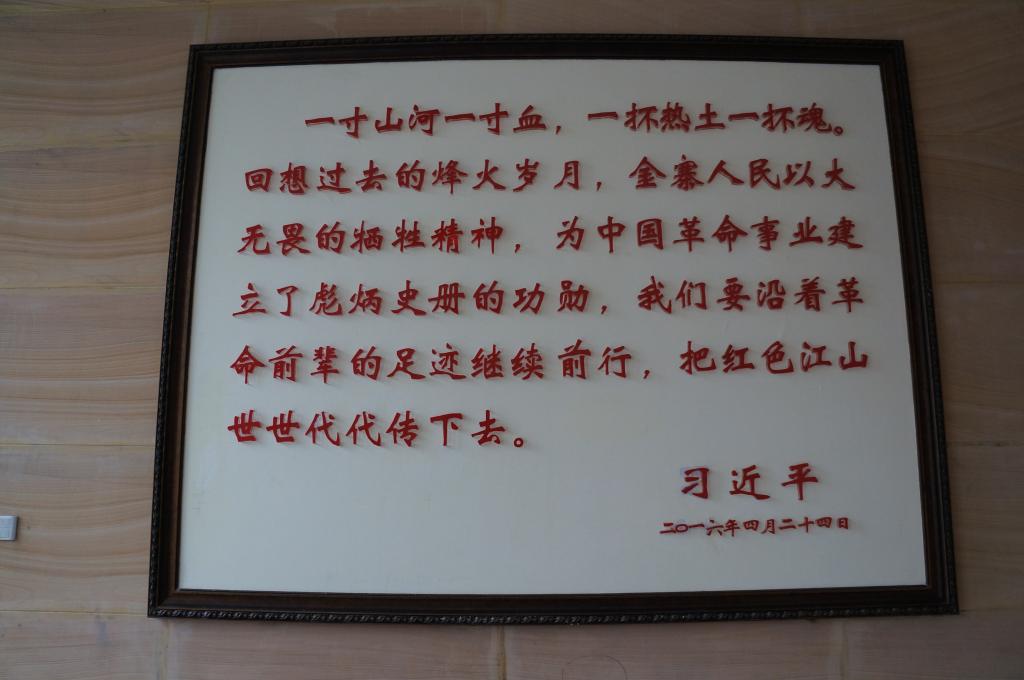 一寸山河一寸血，一抔热土一抔魂。
回想过去的烽火岁月，金寨人民以大
无畏的牺牲精神，为中国革命事业建
立了彪炳史册的功勋，我们要沿着革
命前辈的足迹继续前行，把红色江山
世世代代传下去。
习近平
二〇一六年四月二十四日